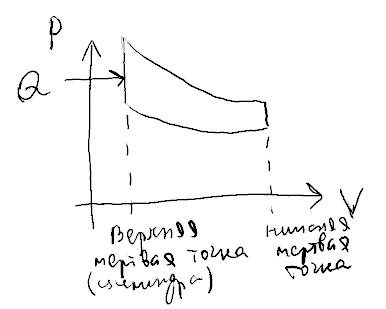 P
Q
V
Верхняя
мертвая точка
(цилиндра)
нижняя
мертвая
точка